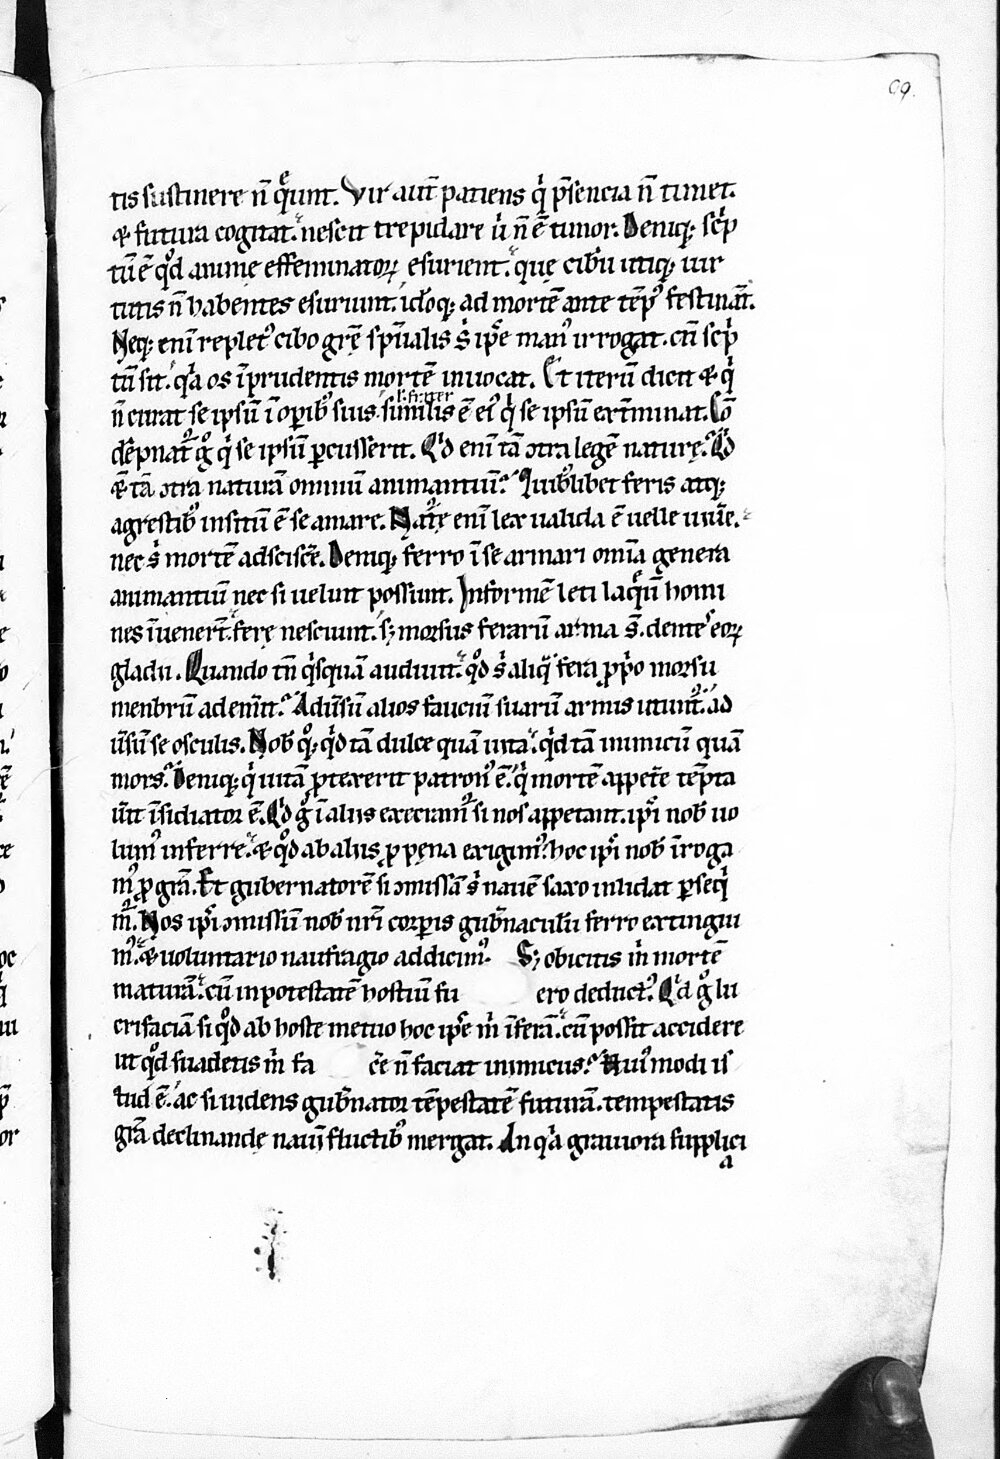 69.
tis sustinere n̄ q̄unt. Vir aut̄ patiens qͥ p̄sencia n̄ timet.
⁊ futura cogitat. nescit trepidare uͥ n̄ ē timor. Deniq; scͥp
tū ē qͦd animę effeminatoꝝ esurient. quę cibū utiq; uir
tutis n̄ habentes esuriunt. idoq; ad mortē ante tēpꝰ festinant̄.
Neq; enī repletꝰ cibo gr̄ę sp̄ualis sͥ ip̄e manꝰ irrogat. cū scͥp
tū sit. qͥa os īprudentis mortē inuocat. Et iterū dicit ⁊ qͥ
n̄ curat se ipsū ī opibꝰ suis. similis ē eiꝰ qͥ se ipsū ext̄minat. Cō
l. frater
dēpnat̉ gͦ qͥ se ipsū ꝑcusserit. Qͥd enī tā ↄtra legē naturę. Qͥd
ē tā ↄtra naturā omniū animantiū. Quibꝰlibet feris atq;
agrestibꝰ insitū ē se amare. Natͬę enī lex ualida ē uelle uiuͤe.
nec sͥ mortē adsciscͤe. Deniq; ferro ī se armari omīa genera
animantiū nec si uelint possunt. Informē leti laq̄ū homi
nes īuenert̄. ferę nesciunt. s; morsus ferarū arma s̄. dentes eoꝝ
gladii. Quando tn̄ qͥsquā audiuit. qͦd sͥ aliqͣ fera ꝓpͥo morsu
menbrū ademīt. Aduͥsū alios fauciū suarū armis utunt̉. ad
uͥsū se osculis. Nobͥ qͦ; qͥd tā dulce quā uita. qͥd tā inimicū quā
mors. Deniq; qͥ uitā ꝓtexerit patronꝰ ē. qͥ mortē appetͤe tēpta
uͥit īsidiator ē. Qͥd gͦ ī aliis execramꝰ si nos appetant. ipͥi nobͥ uo
lumꝰ inferre. ⁊ qͦd ab aliis ꝓ pęna exigimꝰ. hoc ipͥi nobͥ īroga
mꝰ ꝓ gr̄a. Et gubernatorē si ↄmissā sͥ nauē saxo inlidat ꝑseqͥ
mͬ. Nos ipͥi ↄmissū nobͥ nr̄i corꝑis gubͥnaculū ferro extingui
mꝰ. ⁊ uoluntario naufragio addicimꝰ. S; obicitis mͥ mortē
maturā. cū in potestatē hostiū fu ero deductꝰ. Qͥd gͦ lu
crifaciā si qͦd ab hoste metuo hoc ipͤe mͥ īferā. cū possit accidere
ut qͦd suadetis mͥ fa cͤe n̄ faciat inimicus. Huiꝰmodi is
tud ē. ac si uidens gubͥnator tēpestatē futurā. tempestatis
gr̄a declinandę nauī fluctibꝰ mergat. An qͥa grauiora supplici
a